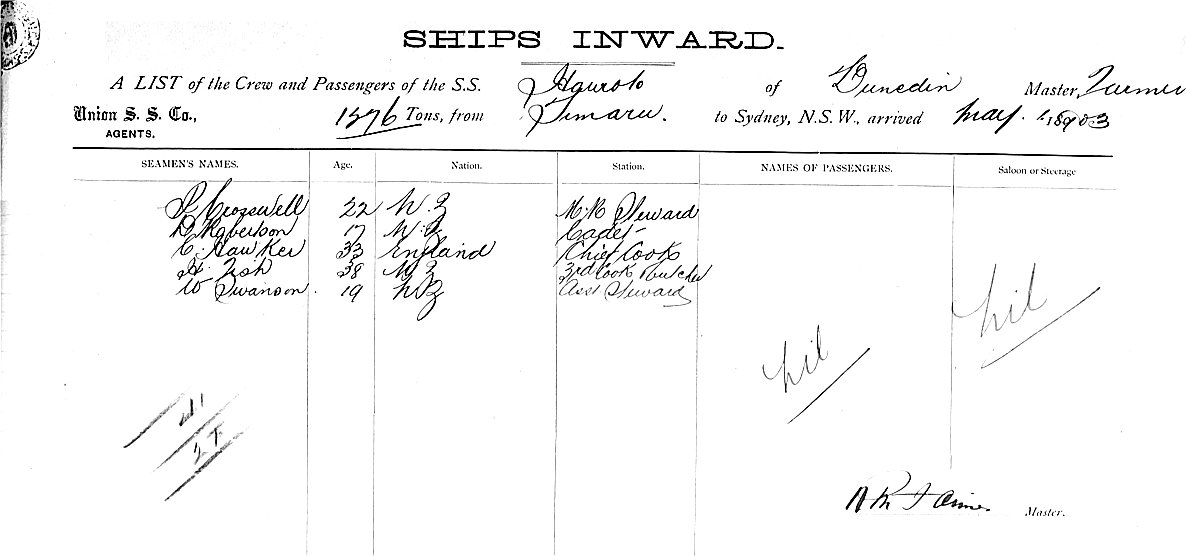 SHIPS INWARD.
A LIST of the Crew and Passengers of the S.S. Hauroto of Dunedin Master,
Union S. S. Co., AGENTS. 1276 Tons, from Timaru. to Sydney, N.S.W., arrived May. 1903
SEAMEN'S NAMES. Age. Nation. Station. NAMES OF PASSENGERS. Saloon or Steerage
Crosswell 22 N. Z Steward
D Roberson 17 N. Z Cadet
C. Hawker 33 England Chief Cook
H. Fish 38 N Z 3rd Cook Butcher
W Swanson. 19 N Z Asst Steward
nil
nil
Master.